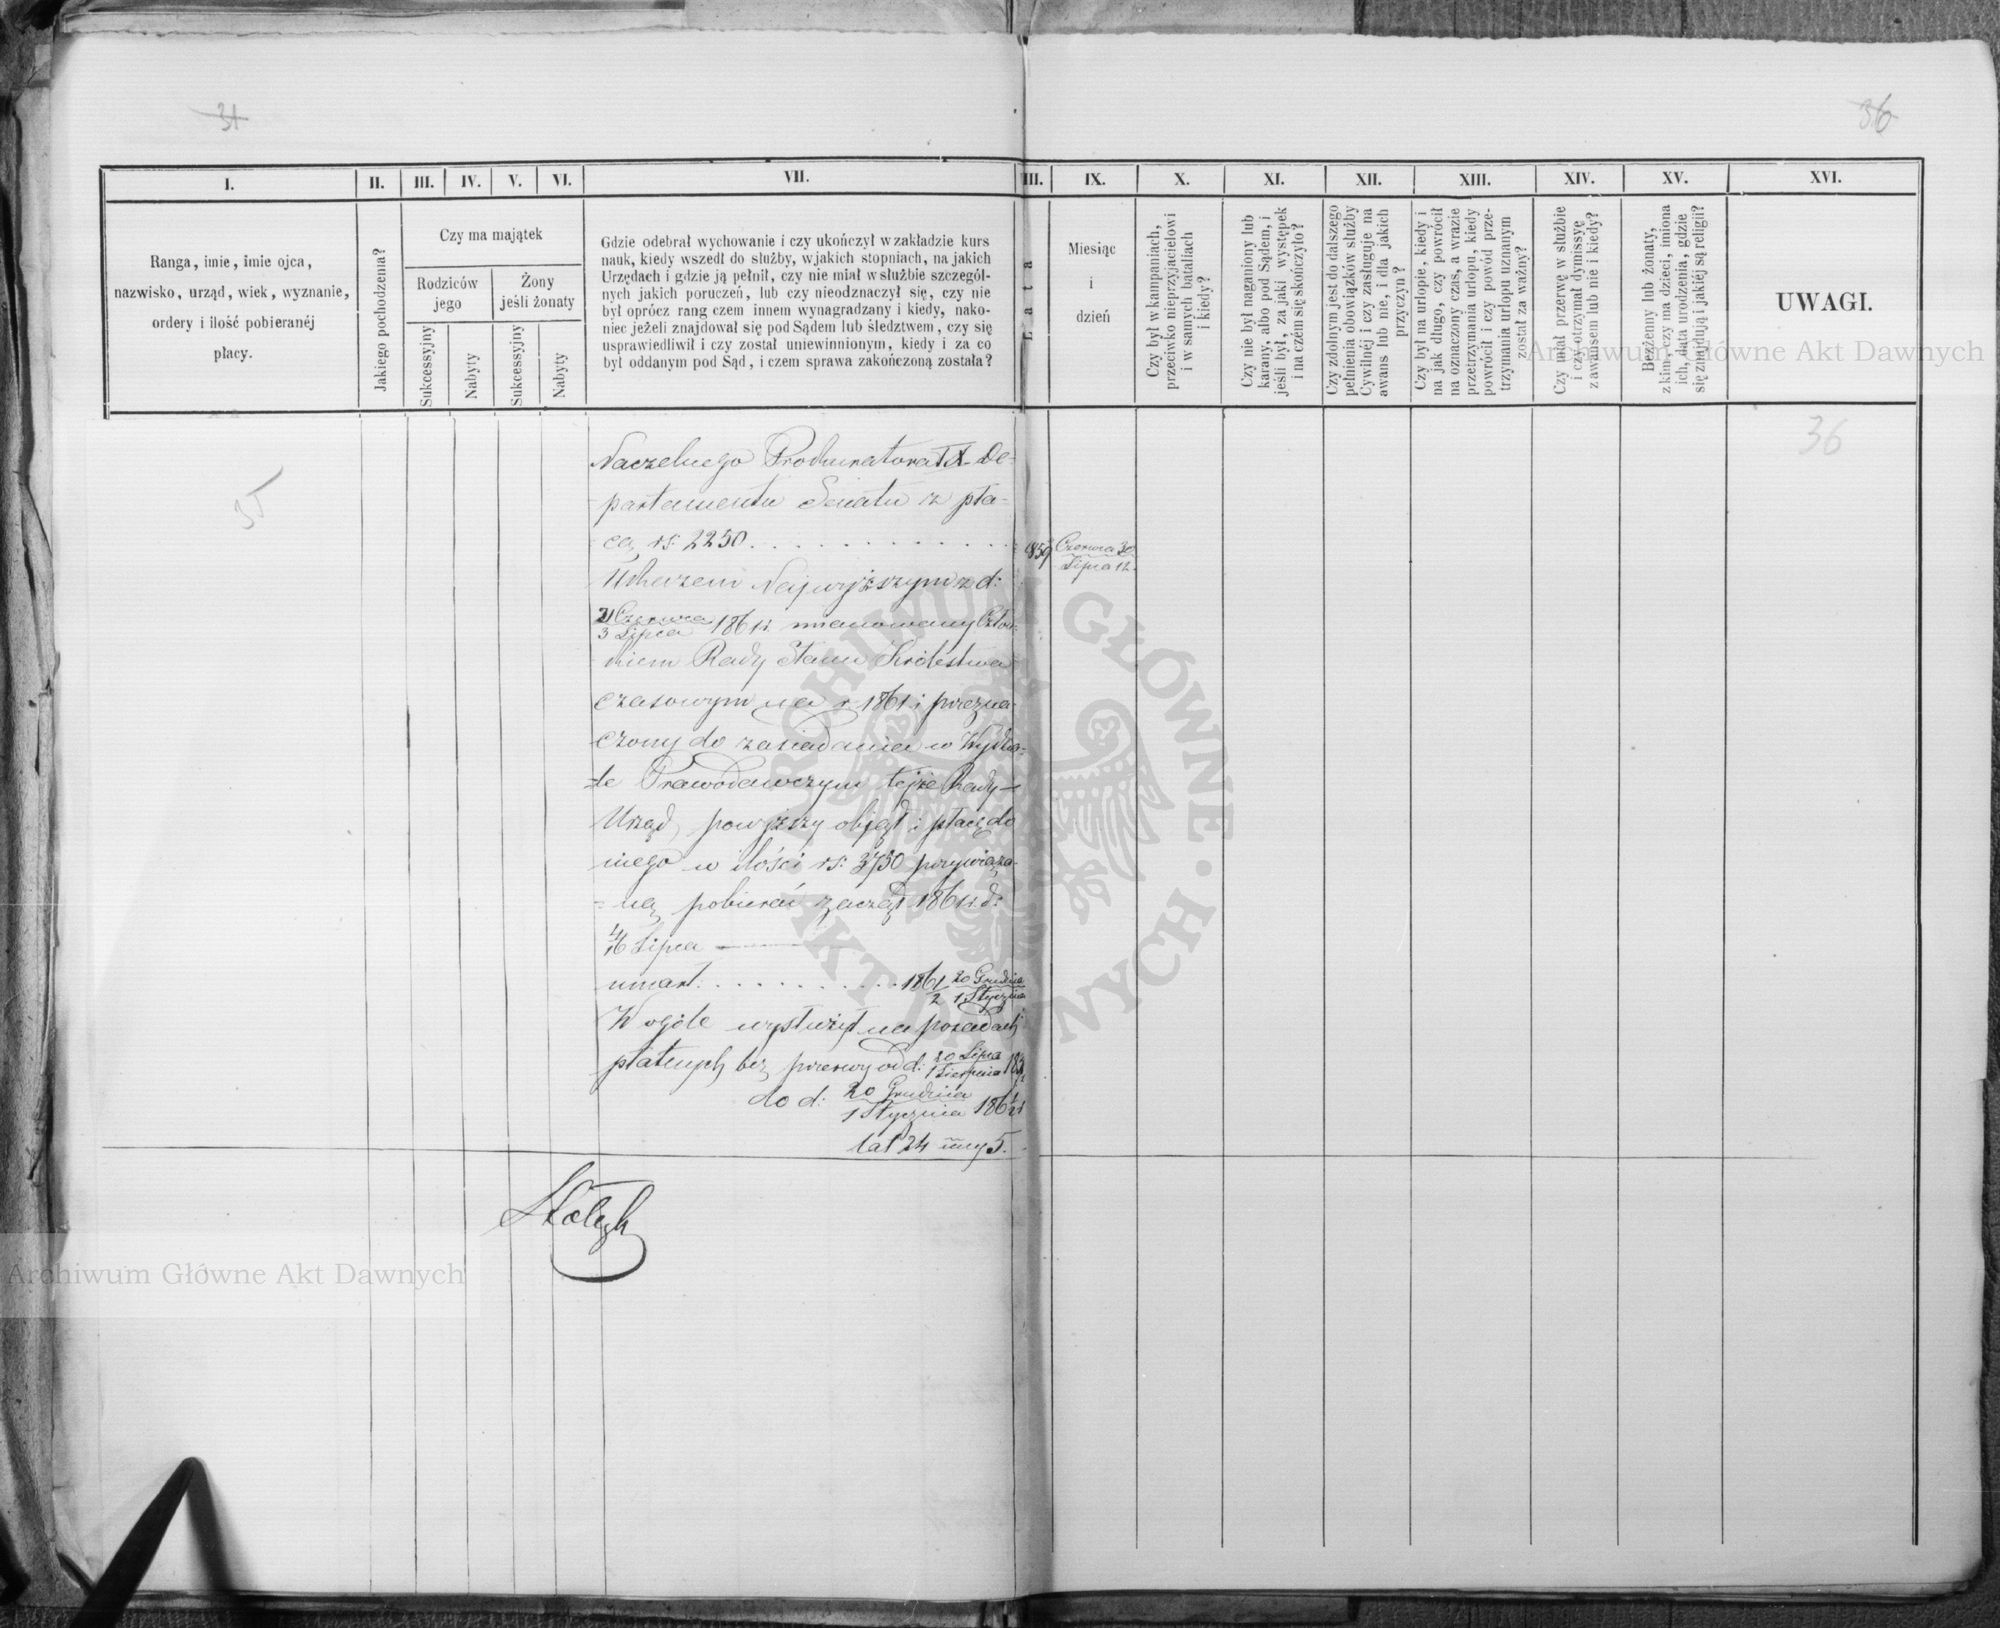 31
36
I.
II.
III.
IV.
V.
VI.
VII.
III.
IX.
X.
XI.
XII.
XIII.
XIV.
XV.
XVI.
Ranga, imie, imie ojca,
nazwisko, urząd, wiek, wyznanie,
ordery i ilość pobieranéj
płacy.
Jakiego pochodzenia?
Czy ma majątek
Rodziców
jego
Żony
jeśli żonaty
Sukcessyjny
Nabyty
Sukcessyjny
Nabyty
Gdzie odebrał wychowanie i czy ukończył w zakładzie kurs
nauk, kiedy wszedł do służby, w jakich stopniach, na jakich
Urzędach i gdzie ją pełnił, czy nie miał w służbie szczegól-
nych jakich poruczeń, lub czy nieodznaczył się, czy nie
był oprócz rang czem innem wynagradzany i kiedy, nako-
niec jeżeli znajdował się pod Sądem lub śledztwem, czy się
usprawiedliwił i czy został uniewinnionym, kiedy i za co
był oddanym pod Sąd, i czem sprawa zakończoną została?
Lata
Miesiąc
i
dzień
Czy był w kampaniach,
przeciwko nieprzyjacielowi
i w samych bataliach
i kiedy?
Czy nie był naganiony lub
karany, albo pod Sądem, i
jeśli był, za jaki występek
i na czém się skończyło?
Czy zdolnym jest do dalszego
pełnienia obowiązków służby
Cywilnéj i czy zasługuje na
awans lub nie, i dla jakich
przyczyn?
Czy był na urlopie, kiedy i
na jak długo, czy powrócił
na oznaczony czas, a w razie
przetrzymania urlopu, kiedy
powrócił i czy powód prze-
trzymania urlopu uznanym
został za ważny?
Czy miał przerwę w służbie
i czy otrzymał dymissyę
z awansem lub nie i kiedy?
Bezżenny lub żonaty,
z kim, czy ma dzieci, imiona
ich, data urodzenia, gdzie
się znajdują i jakiéj są religii?
UWAGI.
Archiwum Główne Akt Dawnych
35
36
Naczelnego Prokuratora IX De-
partamentu Senatu z pła-
cą rs: 2250
1859 Czerwca 30
Lipca 12
Ukazem Najwyższym z d:
21 Czerwca
3 Lipca 1861 r. mianowany Człon-
kiem Rady Stanu Królestwa
czasowym na r. 1861 i przezna-
czony do zasiadania w Wydzia-
le Prawodawczym tejże Rady
Urząd powyższy objął i płacę do
niego w ilości rs: 3750 przywiąza-
ną pobierać zaczął 1861 r. d:
4/16 Lipca
umarł 1861/2 20 Grudnia
1 Stycznia
W ogóle wysłużył na posadach
płatnych bez przerwy od d: 20 Lipca
1 Sierpnia
do d: 20 Grudnia
1 Stycznia 186 1/2 r
lat 24 mcy 5.
ARCHIWUM GŁÓWNE · AKT DAWNYCH ·
Archiwum Główne Akt Dawnych